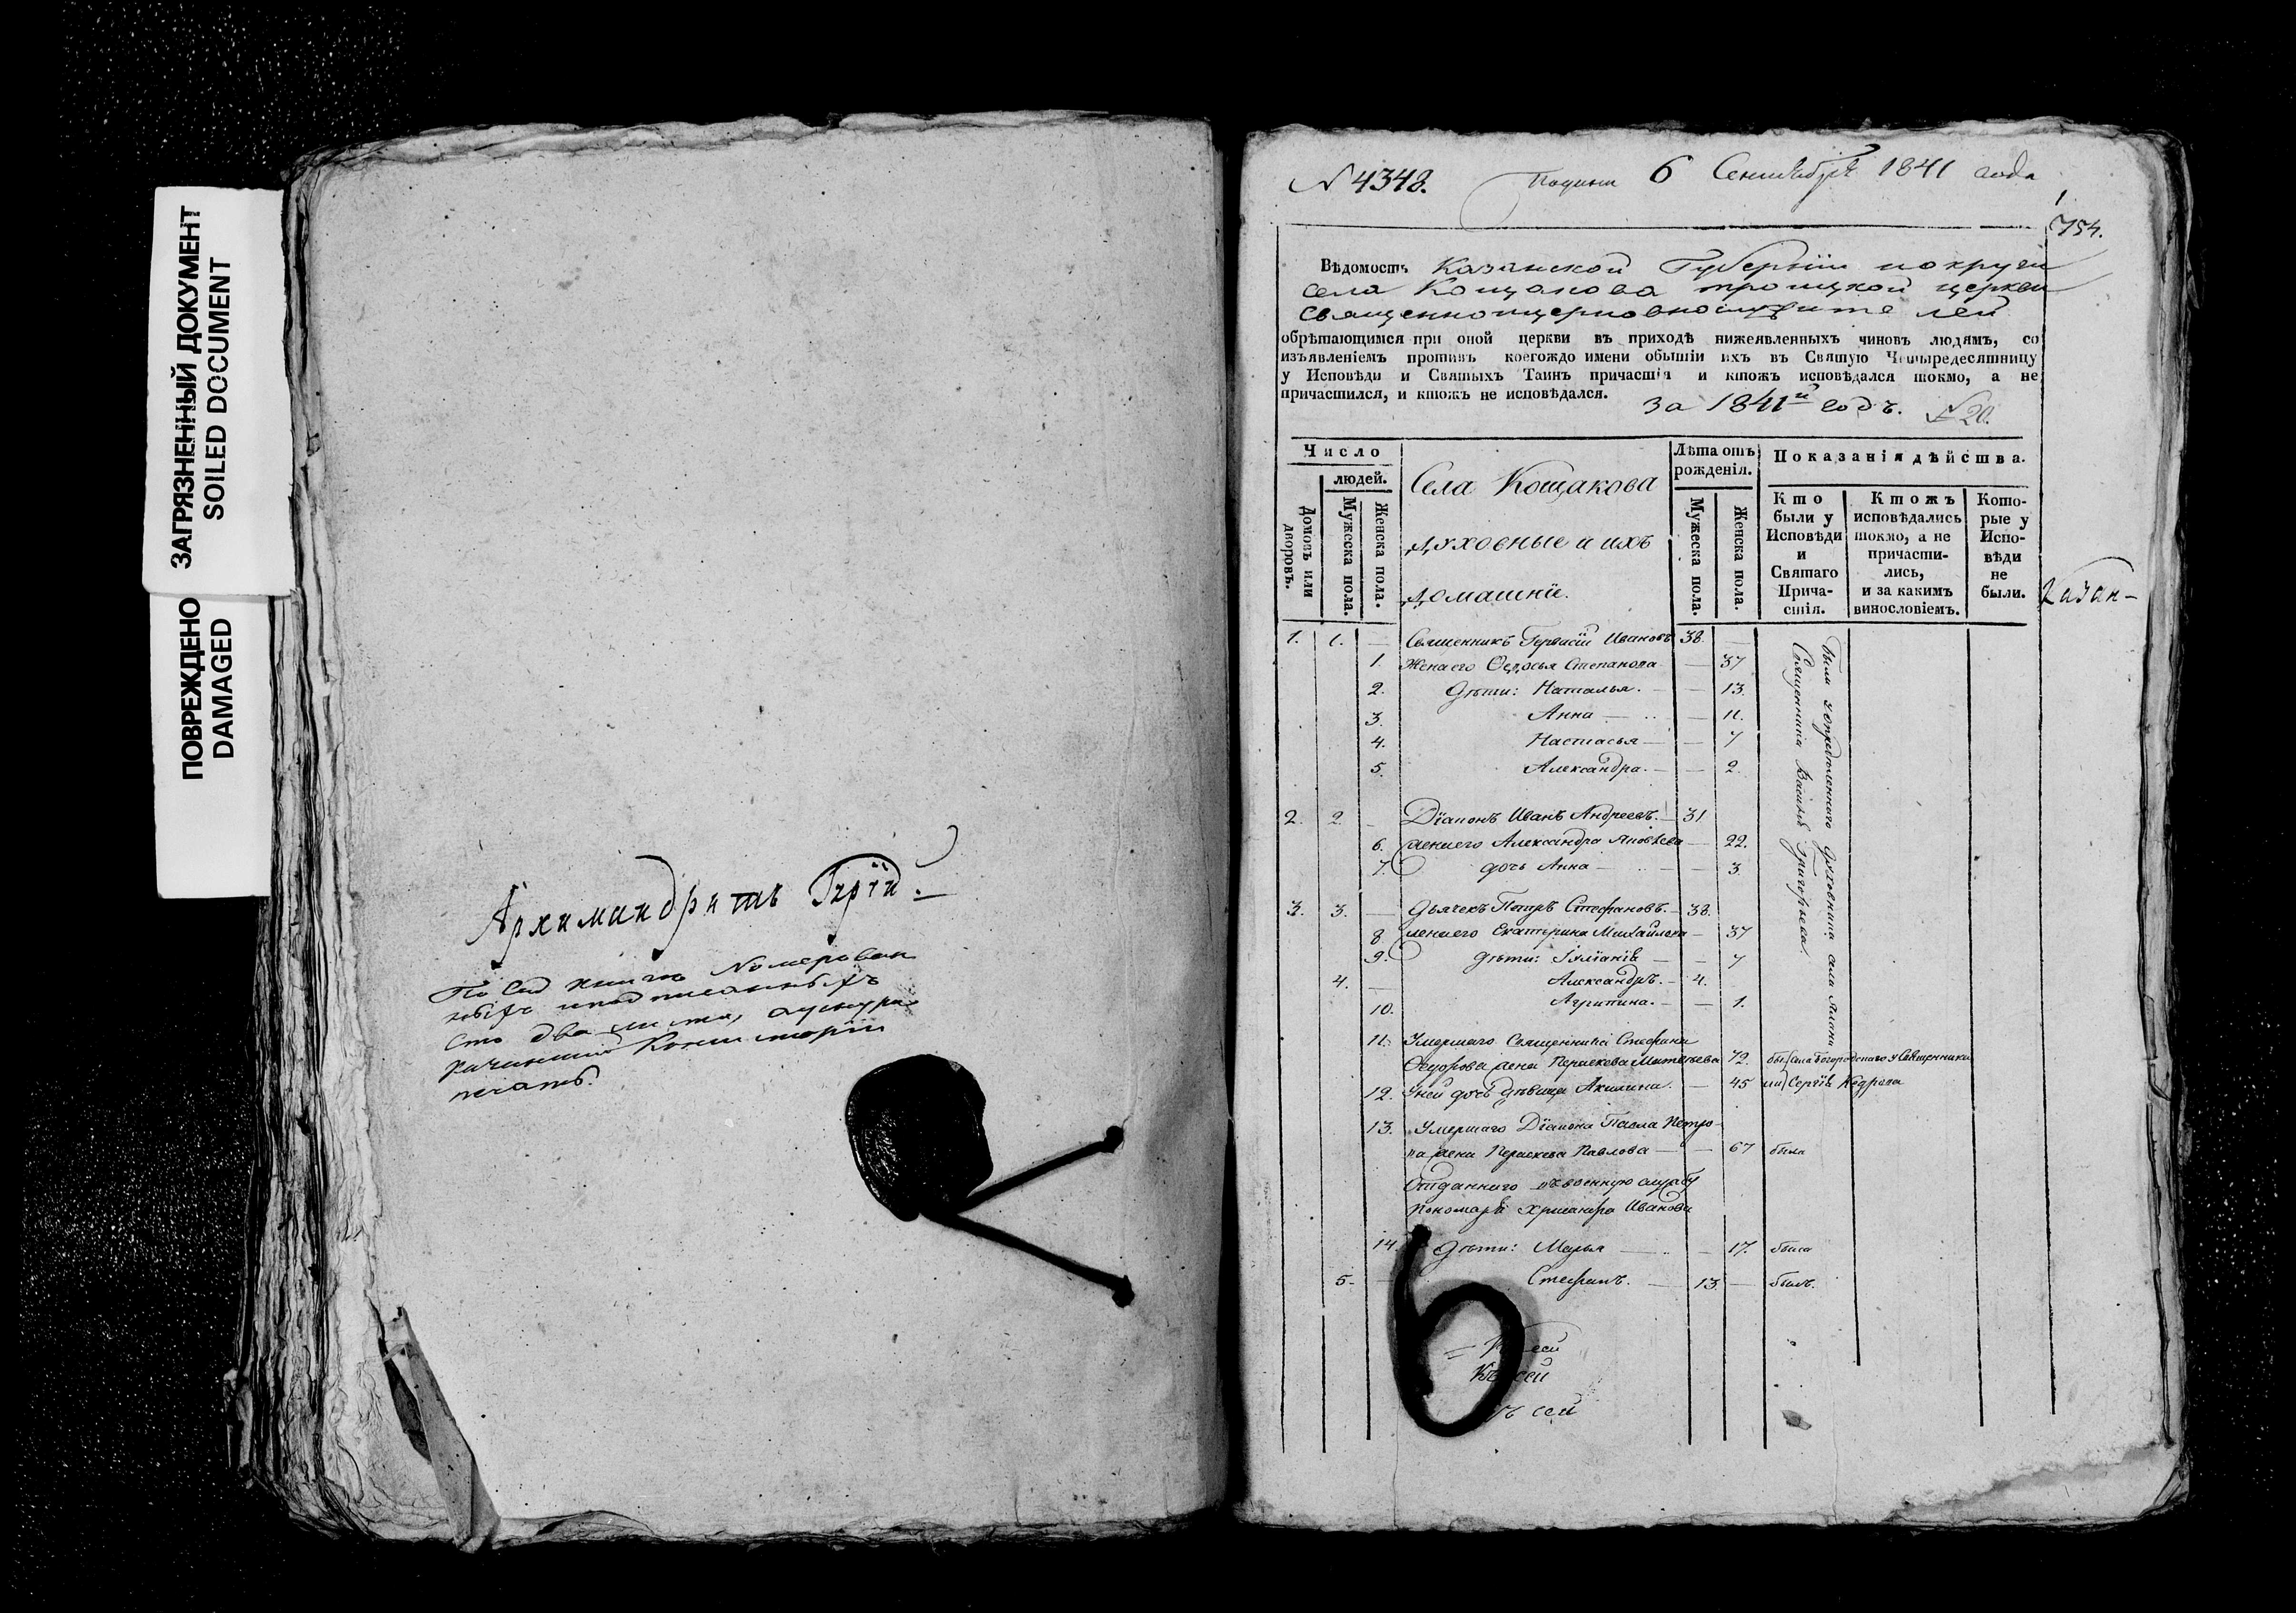 ЗАГРЯЗНЕННЫЙ ДОКУМЕНТ
SOILED DOCUMENT
ПОВРЕЖДЕНО
DAMAGED
Архимандритъ
По сей книге Номерован
ныхъ и подписанныхъ
сто два листа,
Консисторіи
печать.
N 4348. 6 Сентября 1841 года
754.
Вѣдомость Казанской Губерніи и округи
села Кощакова троицкой церкви
священноицерковнослужителей
обрѣтающимся при оной церкви въ приходѣ нижеявленныхъ чиновъ людямъ, со
изъявленіемъ противъ коегождо имени бытіи ихъ въ Святую Четыредесятницу
у Исповѣди и Святыхъ Таинъ причастія и ктожъ исповѣдался токмо, а не
причастился, и ктожъ не исповѣдался.
за 1841й годъ. N 20.
Число
людей.
Домовъ или дворовъ.
Мужеска пола.
Женска пола.
Села Кощакова
духовные и ихъ
домашніи.
Лѣта отъ рожденія.
Мужеска пола.
Женска пола.
Показанія дѣйства.
Кто были у Исповѣди и Святаго Прича-стія.
Ктожъ исповѣдались токмо, а не причасти-лись, и за какимъ винословіемъ.
Кото-рые у Испо-вѣди не были.
Казан-
1. 1. — Священникъ Гервасій Ивановъ 38. —
1. Жена его Ѳедосья Степанова — 37
2. Дѣти: Наталья. — 13.
3. Анна — 11.
4. Настасья — 7
5. Александра. — 2.
2. 2. — Діаконъ Иванъ Андреевъ. 31
6. жена его Александра Яковлева — 22.
7. дочь Анна — 3
3. 3. — Дьячекъ Петръ Стефановъ. — 38.
8 жена его Екатерина Михайлова — 37
9. дѣти: Іуліанія — 7
4. — Александръ. — 4.
10. Агрипина. — 1.
Были у опредѣленнаго духовника села
Священника Василія Григорьева.
11. Умершаго Священника Стефана
Ѳедорова жена Параскева Матвѣева 72.
12. У ней дочь дѣвица Акилина. — 45
бы села Богородскаго у Священника
ли Сергія Кедрова
13. Умершаго Діакона Павла Петро-
ва жена Параскева Павлова — 67 была
Отданнаго въ военную службу
пономаря Иванова
14. Дѣти: Марья — 17. была
5. — Стефанъ. — 13 — былъ.
6
сей
сей
ъ сей